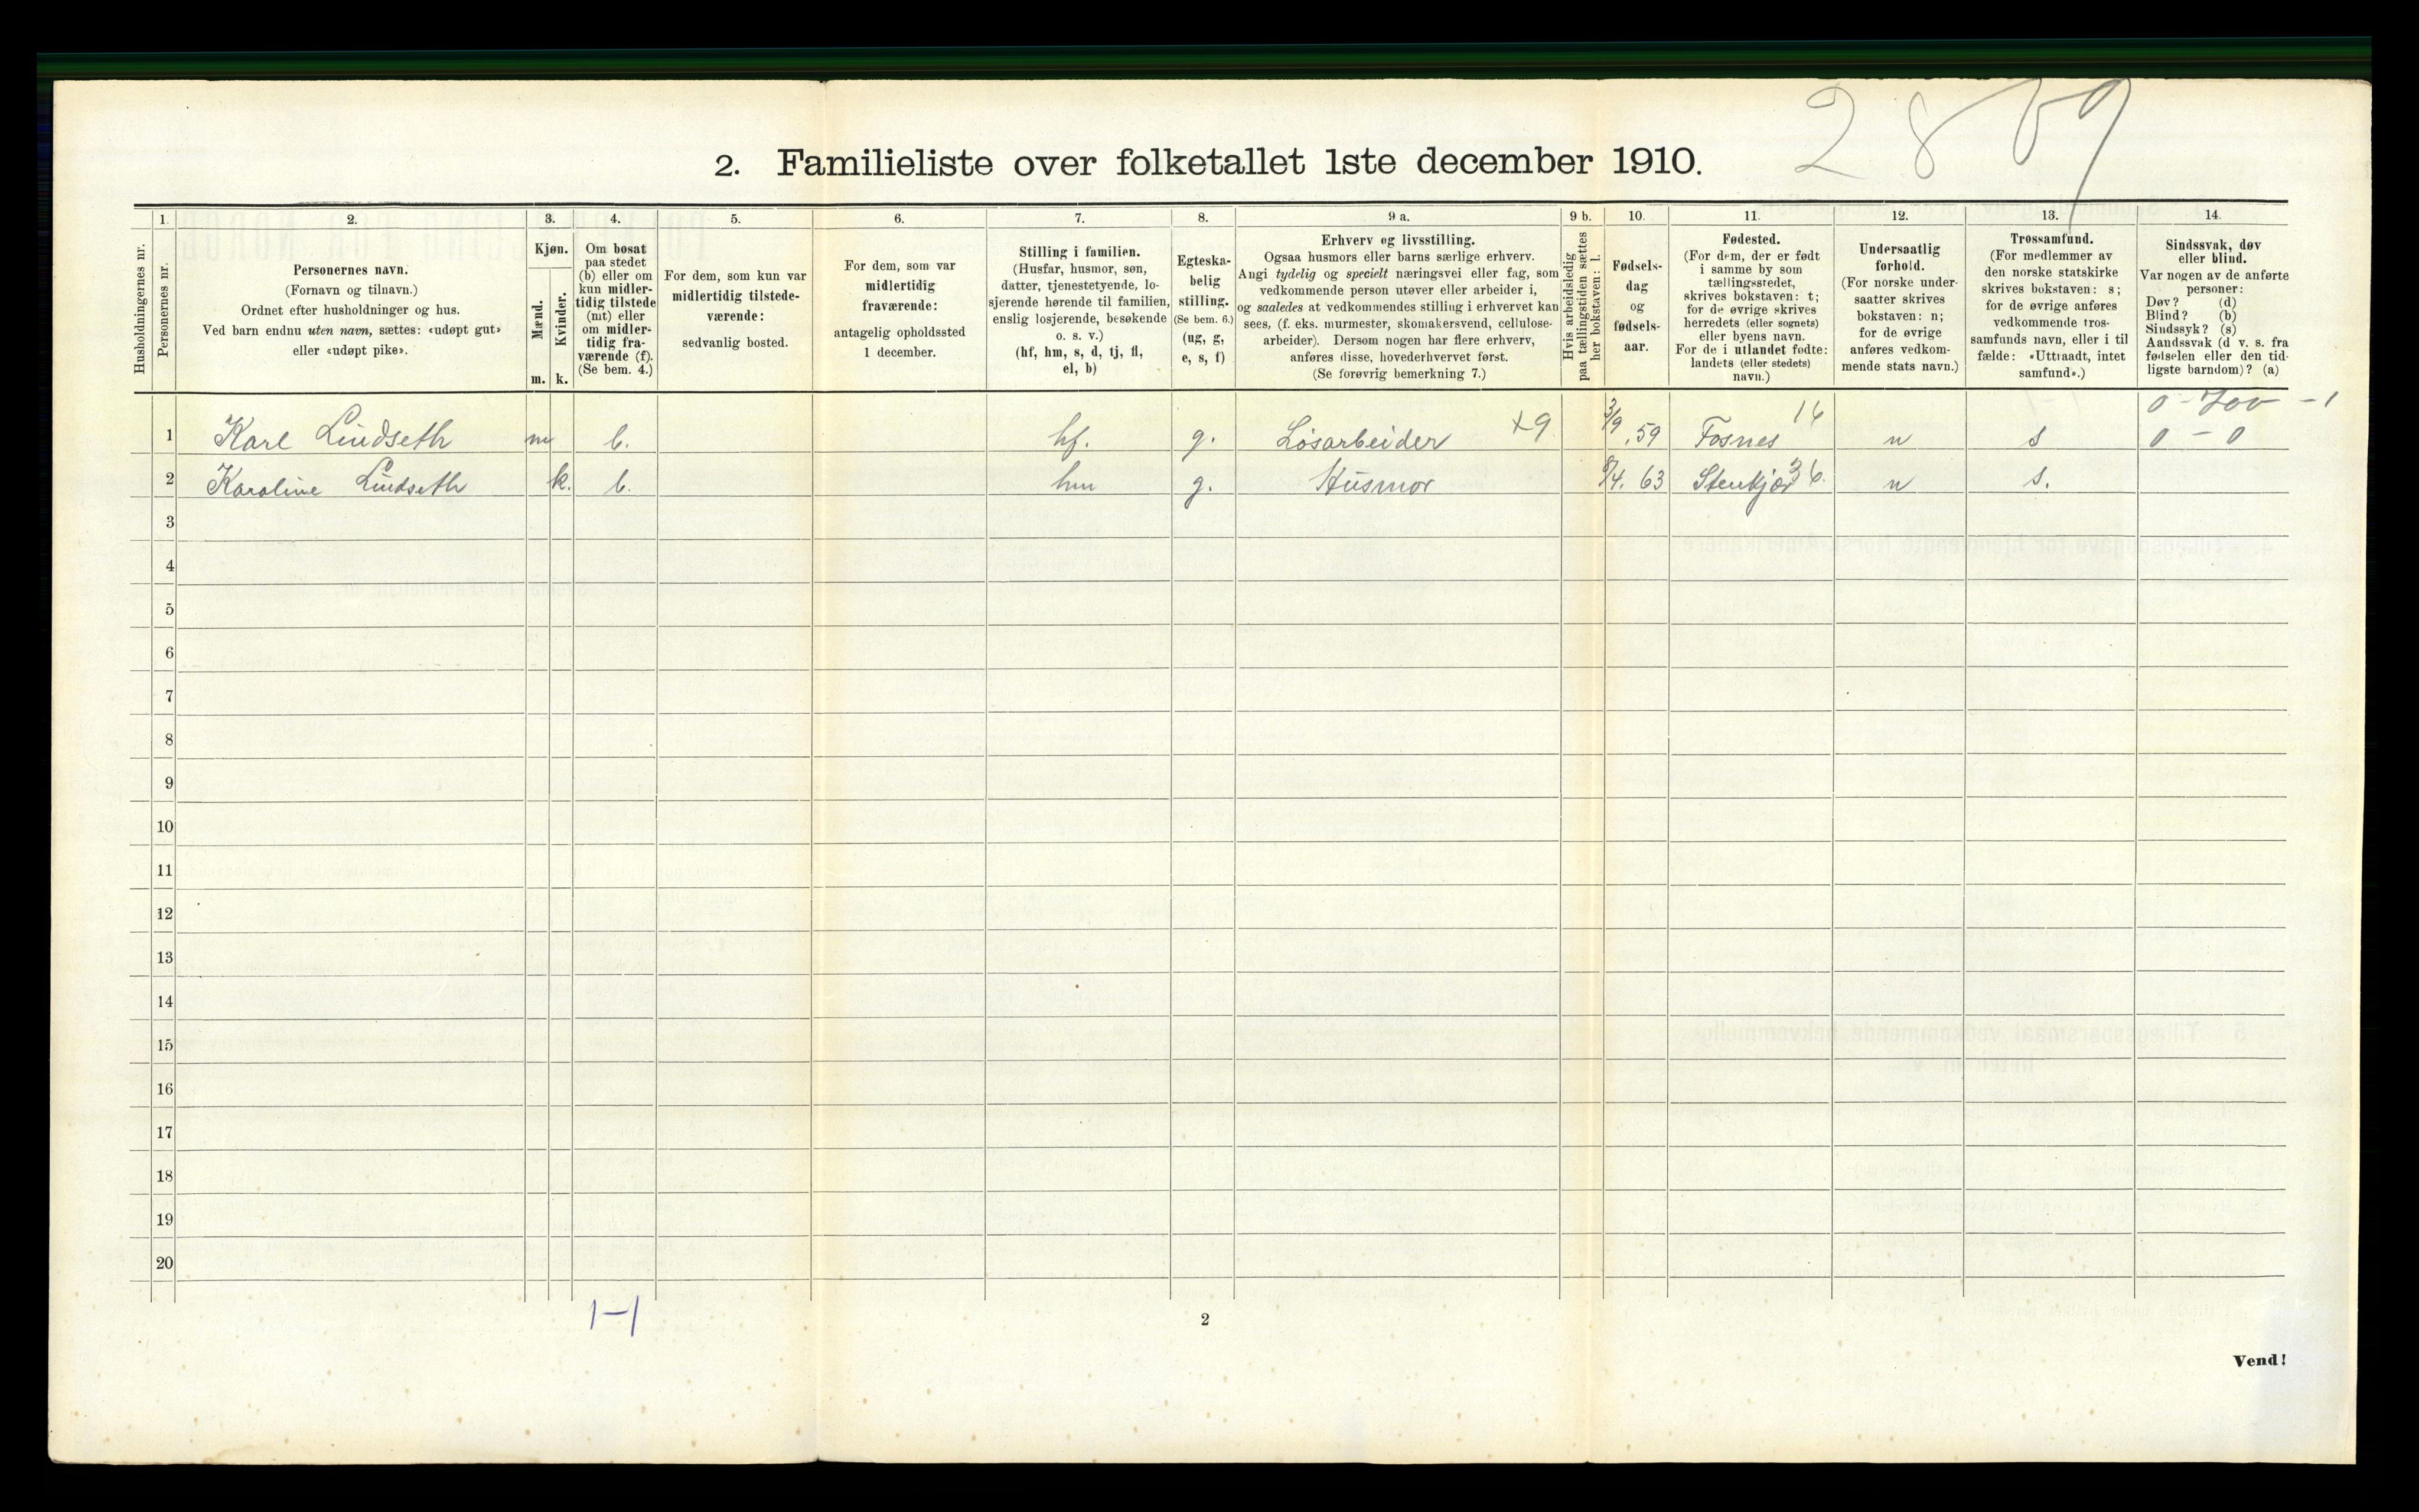 2869
2. Familieliste over folketallet 1ste december 1910.
Husholdningernes nr.
1.
Personernes nr.
2.
Personernes navn.
(Fornavn og tilnavn.)
Ordnet efter husholdninger og hus.
Ved barn endnu uten navn, sættes: «udøpt gut»
eller «udøpt pike».
3.
Kjøn.
Mænd.
Kvinder.
m. k.
4.
Om bosat
paa stedet
(b) eller om
kun midler-
tidig tilstede
(mt) eller
om midler-
tidig fra-
værende (f).
(Se bem. 4.)
5.
For dem, som kun var
midlertidig tilstede-
værende:
sedvanlig bosted.
6.
For dem, som var
midlertidig
fraværende:
antagelig opholdssted
1 december.
7.
Stilling i familien.
(Husfar, husmor, søn,
datter, tjenestetyende, lo-
sjerende hørende til familien,
enslig losjerende, besøkende
o. s. v.)
(hf, hm, s, d, tj, fl,
el, b)
8.
Egteska-
belig
stilling.
(Se bem. 6.)
(ug, g,
e, s, f)
9 a.
Erhverv og livsstilling.
Ogsaa husmors eller barns særlige erhverv.
Angi tydelig og specielt næringsvei eller fag, som
vedkommende person utøver eller arbeider i,
og saaledes at vedkommendes stilling i erhvervet kan
sees, (f. eks. murmester, skomakersvend, cellulose-
arbeider). Dersom nogen har flere erhverv,
anføres disse, hovederhvervet først.
(Se forøvrig bemerkning 7.)
9 b.
Hvis arbeidsledig
paa tællingstiden sættes
her bokstaven: l.
10.
Fødsels-
dag
og
fødsels-
aar.
11.
Fødested.
(For dem, der er født
i samme by som
tællingsstedet,
skrives bokstaven: t;
for de øvrige skrives
herredets (eller sognets)
eller byens navn.
For de i utlandet fødte:
landets (eller stedets)
navn.)
12.
Undersaatlig
forhold.
(For norske under-
saatter skrives
bokstaven: n;
for de øvrige
anføres vedkom-
mende stats navn.)
13.
Trossamfund.
(For medlemmer av
den norske statskirke
skrives bokstaven: s;
for de øvrige anføres
vedkommende tros-
samfunds navn, eller i til
fælde: «Uttraadt, intet
samfund».)
14.
Sindssvak, døv
eller blind.
Var nogen av de anførte
personer:
Døv? (d)
Blind? (b)
Sindssyk? (s)
Aandssvak (d. v. s. fra
fødselen eller den tid-
ligste barndom)? (a)
0 - 700 - 1
1 Karl Lindseth m b. hf. g. Løsarbeider +9 3/9 .59 Fosnes 16 n s 0 - 0
2 Karoline Lindseth k. b. hm g. Husmor 63 Stenkjær 36. n s.
3
4
5
6
7
8
9
10
11
12
13
14
15
16
17
18
19
20
1-1
2
Vend!